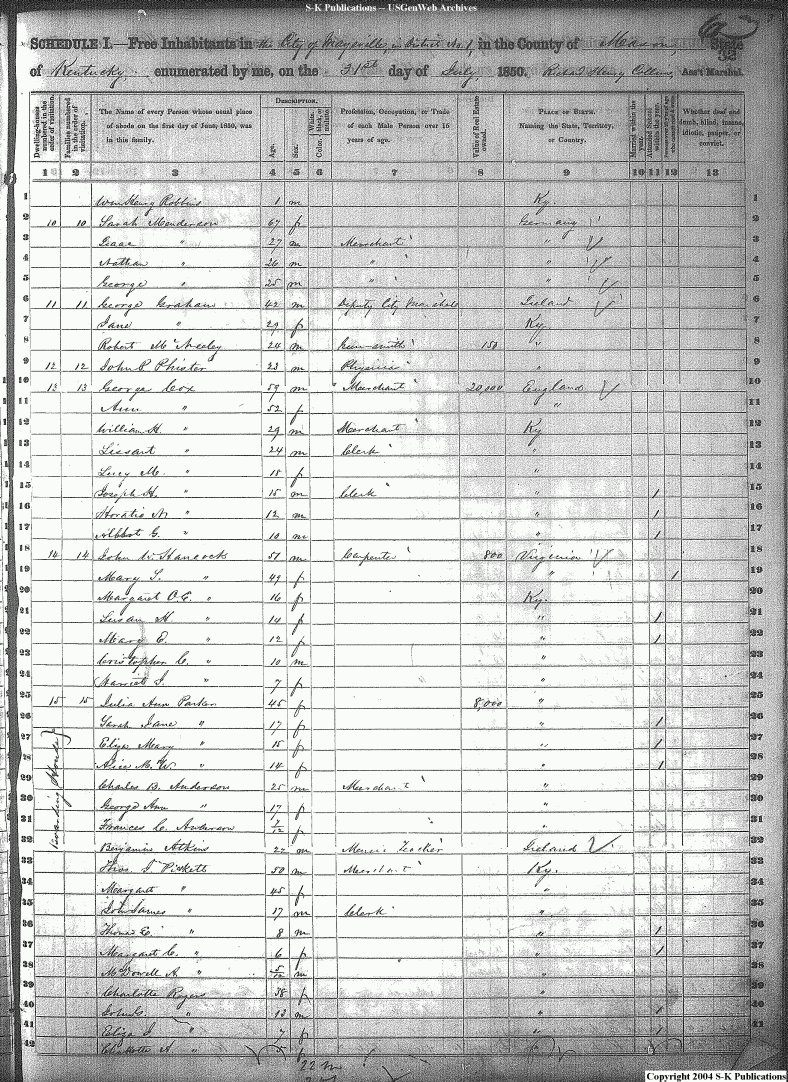 S-K Publications -- USGenWeb Archives
SCHEDULE I.—Free Inhabitants in the City of Maysville, in District No. 1, in the County of Mason State
of Kentucky enumerated by me, on the 31st day of July 1850. Richard Henry Collins, Ass't Marshal.
Dwelling-houses numbered in the order of visitation.
Families numbered in the order of visitation.
The Name of every Person whose usual place of abode on the first day of June, 1850, was in this family.
DESCRIPTION.
Age.
Sex.
Color, White, black, or mulatto.
Profession, Occupation, or Trade of each Male Person over 15 years of age.
Value of Real Estate owned.
PLACE OF BIRTH. Naming the State, Territory, or Country.
Married within the year.
Attended School within the year.
Whether deaf and dumb, blind, insane, idiotic, pauper, or convict.
1 2 3 4 5 6 7 8 9 10 11 12 13
1 Wm Henry Robbins 1 m Ky. 1
2 10 10 Sarah Menderson 67 f Germany 2
3 Isaac " 27 m Merchant " 3
4 Nathan " 26 m " " 4
5 George " 25 m " " 5
6 11 11 George Graham 42 m Deputy City Marshall Ireland 6
7 Jane " 29 f Ky. 7
8 Robert McNeeley 24 m Gun-smith 150 " 8
9 12 12 John P. Phister 23 m Physician " 9
10 13 13 George Cox 59 m Merchant 20,000 England 10
11 Ann " 52 f " 11
12 William H. " 29 m Merchant Ky 12
13 " 24 m Clerk " 13
14 Lucy M. " 18 f " 14
15 Joseph H. " 15 m Clerk " 1 15
16 Horatio N. " 12 m " 1 16
17 Albert G. " 10 m " 1 17
18 14 14 John W. Hancock 51 m Carpenter 800 Virginia 18
19 Mary S. " 49 f " 1 19
20 Margaret O.E. " 16 f Ky. 20
21 Susan H. " 14 f " 1 21
22 Mary E. " 12 f " 1 22
23 Cristopher C. " 10 m " 23
24 Harriet J. " 7 f " 24
25 15 15 Julia Ann Parker 45 f 8,000 " 25
26 Sarah Jane " 17 f " 1 26
27 Eliza Mary " 15 f " 1 27
28 Alice M. W. " 14 f " 1 28
Boarding House
29 Charles B. Anderson 25 m Merchant " 29
30 George Ann " 17 f " 30
31 Frances C. Anderson f " 31
32 Benjamin Atkins 22 m Music Teacher Ireland 32
33 Thos. J. Pickett 50 m Merchant Ky. 33
34 Margaret " 45 f " 34
35 John James " 17 m Clerk " 35
36 Thomas E. " 8 m " 1 36
37 Margaret C. " 6 f " 1 37
38 McDowell A. " m " 38
39 Charlotte Rogers 38 f " 39
40 John G. " 13 m " 1 40
41 Eliza J. " 7 f " 1 41
42 Charlotte A. "
22 m
Copyright 2004 S-K Publications